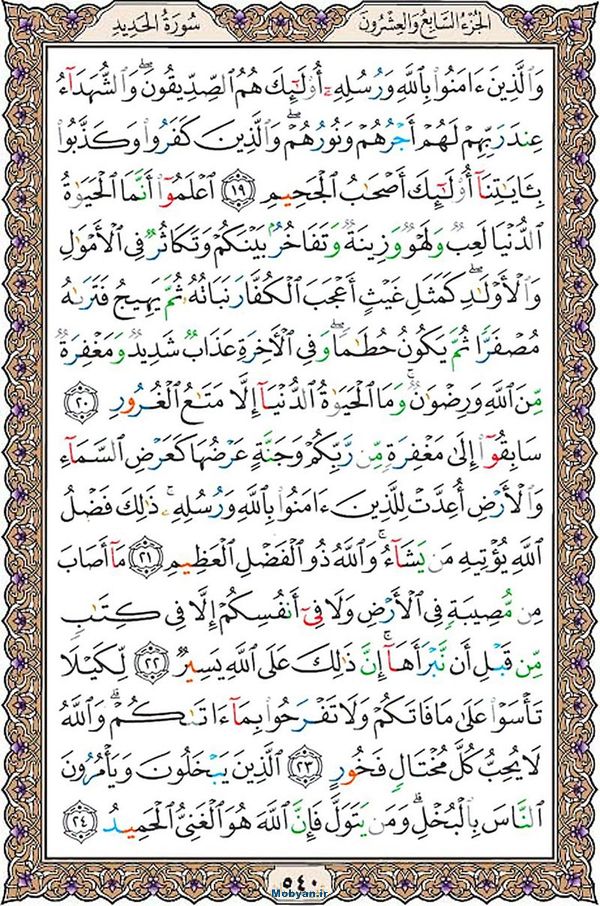 الجُزءُ السَّابِعُ وَالعِشرُونَ
سُورَةُ الحَدِيدِ
وَالَّذِينَ ءَامَنُوا۟ بِاللَّهِ وَرُسُلِهِۦٓ أُو۟لَٰٓئِكَ هُمُ الصِّدِّيقُونَۖ وَالشُّهَدَآءُ
عِندَ رَبِّهِمْ لَهُمْ أَجْرُهُمْ وَنُورُهُمْۖ وَالَّذِينَ كَفَرُوا۟ وَكَذَّبُوا۟
بِـَٔايَٰتِنَآ أُو۟لَٰٓئِكَ أَصْحَٰبُ الْجَحِيمِ ١٩ اعْلَمُوٓا۟ أَنَّمَا الْحَيَوٰةُ
الدُّنْيَا لَعِبٌ وَلَهْوٌ وَزِينَةٌ وَتَفَاخُرٌۢ بَيْنَكُمْ وَتَكَاثُرٌ فِى الْأَمْوَٰلِ
وَالْأَوْلَٰدِۖ كَمَثَلِ غَيْثٍ أَعْجَبَ الْكُفَّارَ نَبَاتُهُۥ ثُمَّ يَهِيجُ فَتَرَىٰهُ
مُصْفَرًّا ثُمَّ يَكُونُ حُطَٰمًاۖ وَفِى الْءَاخِرَةِ عَذَابٌ شَدِيدٌ وَمَغْفِرَةٌ
مِّنَ اللَّهِ وَرِضْوَٰنٌۚ وَمَا الْحَيَوٰةُ الدُّنْيَآ إِلَّا مَتَٰعُ الْغُرُورِ ٢٠
سَابِقُوٓا۟ إِلَىٰ مَغْفِرَةٍ مِّن رَّبِّكُمْ وَجَنَّةٍ عَرْضُهَا كَعَرْضِ السَّمَآءِ
وَالْأَرْضِ أُعِدَّتْ لِلَّذِينَ ءَامَنُوا۟ بِاللَّهِ وَرُسُلِهِۦۚ ذَٰلِكَ فَضْلُ
اللَّهِ يُؤْتِيهِ مَن يَشَآءُۚ وَاللَّهُ ذُو الْفَضْلِ الْعَظِيمِ ٢١ مَآ أَصَابَ
مِن مُّصِيبَةٍ فِى الْأَرْضِ وَلَا فِىٓ أَنفُسِكُمْ إِلَّا فِى كِتَٰبٍ
مِّن قَبْلِ أَن نَّبْرَأَهَآۚ إِنَّ ذَٰلِكَ عَلَى اللَّهِ يَسِيرٌ ٢٢ لِّكَيْلَا
تَأْسَوْا۟ عَلَىٰ مَا فَاتَكُمْ وَلَا تَفْرَحُوا۟ بِمَآ ءَاتَىٰكُمْۗ وَاللَّهُ
لَا يُحِبُّ كُلَّ مُخْتَالٍ فَخُورٍ ٢٣ الَّذِينَ يَبْخَلُونَ وَيَأْمُرُونَ
النَّاسَ بِالْبُخْلِۗ وَمَن يَتَوَلَّ فَإِنَّ اللَّهَ هُوَ الْغَنِىُّ الْحَمِيدُ ٢٤
٥٤٠
Mobyan.ir